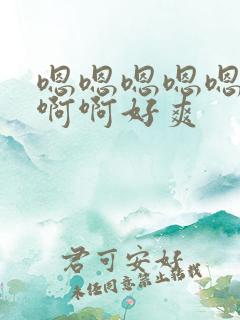 嗯嗯嗯嗯嗯
啊啊好爽
君可安好
未经同意禁止转载